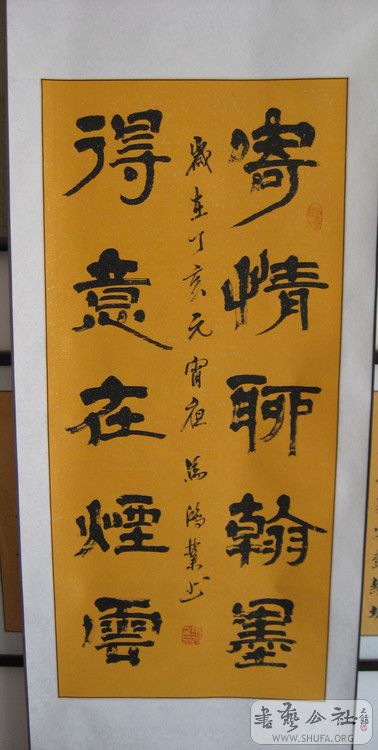 寄情聊翰墨
得意在煙雲
歲在丁亥元宵夜 馬鴻業书
書藝公社
WWW.SHUFA.ORG